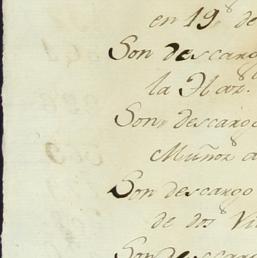 en 19,, de
Son descargo
la Haz.
Son, descargo
Muñoz a
Son descargo
de dos Vi
Son descargo